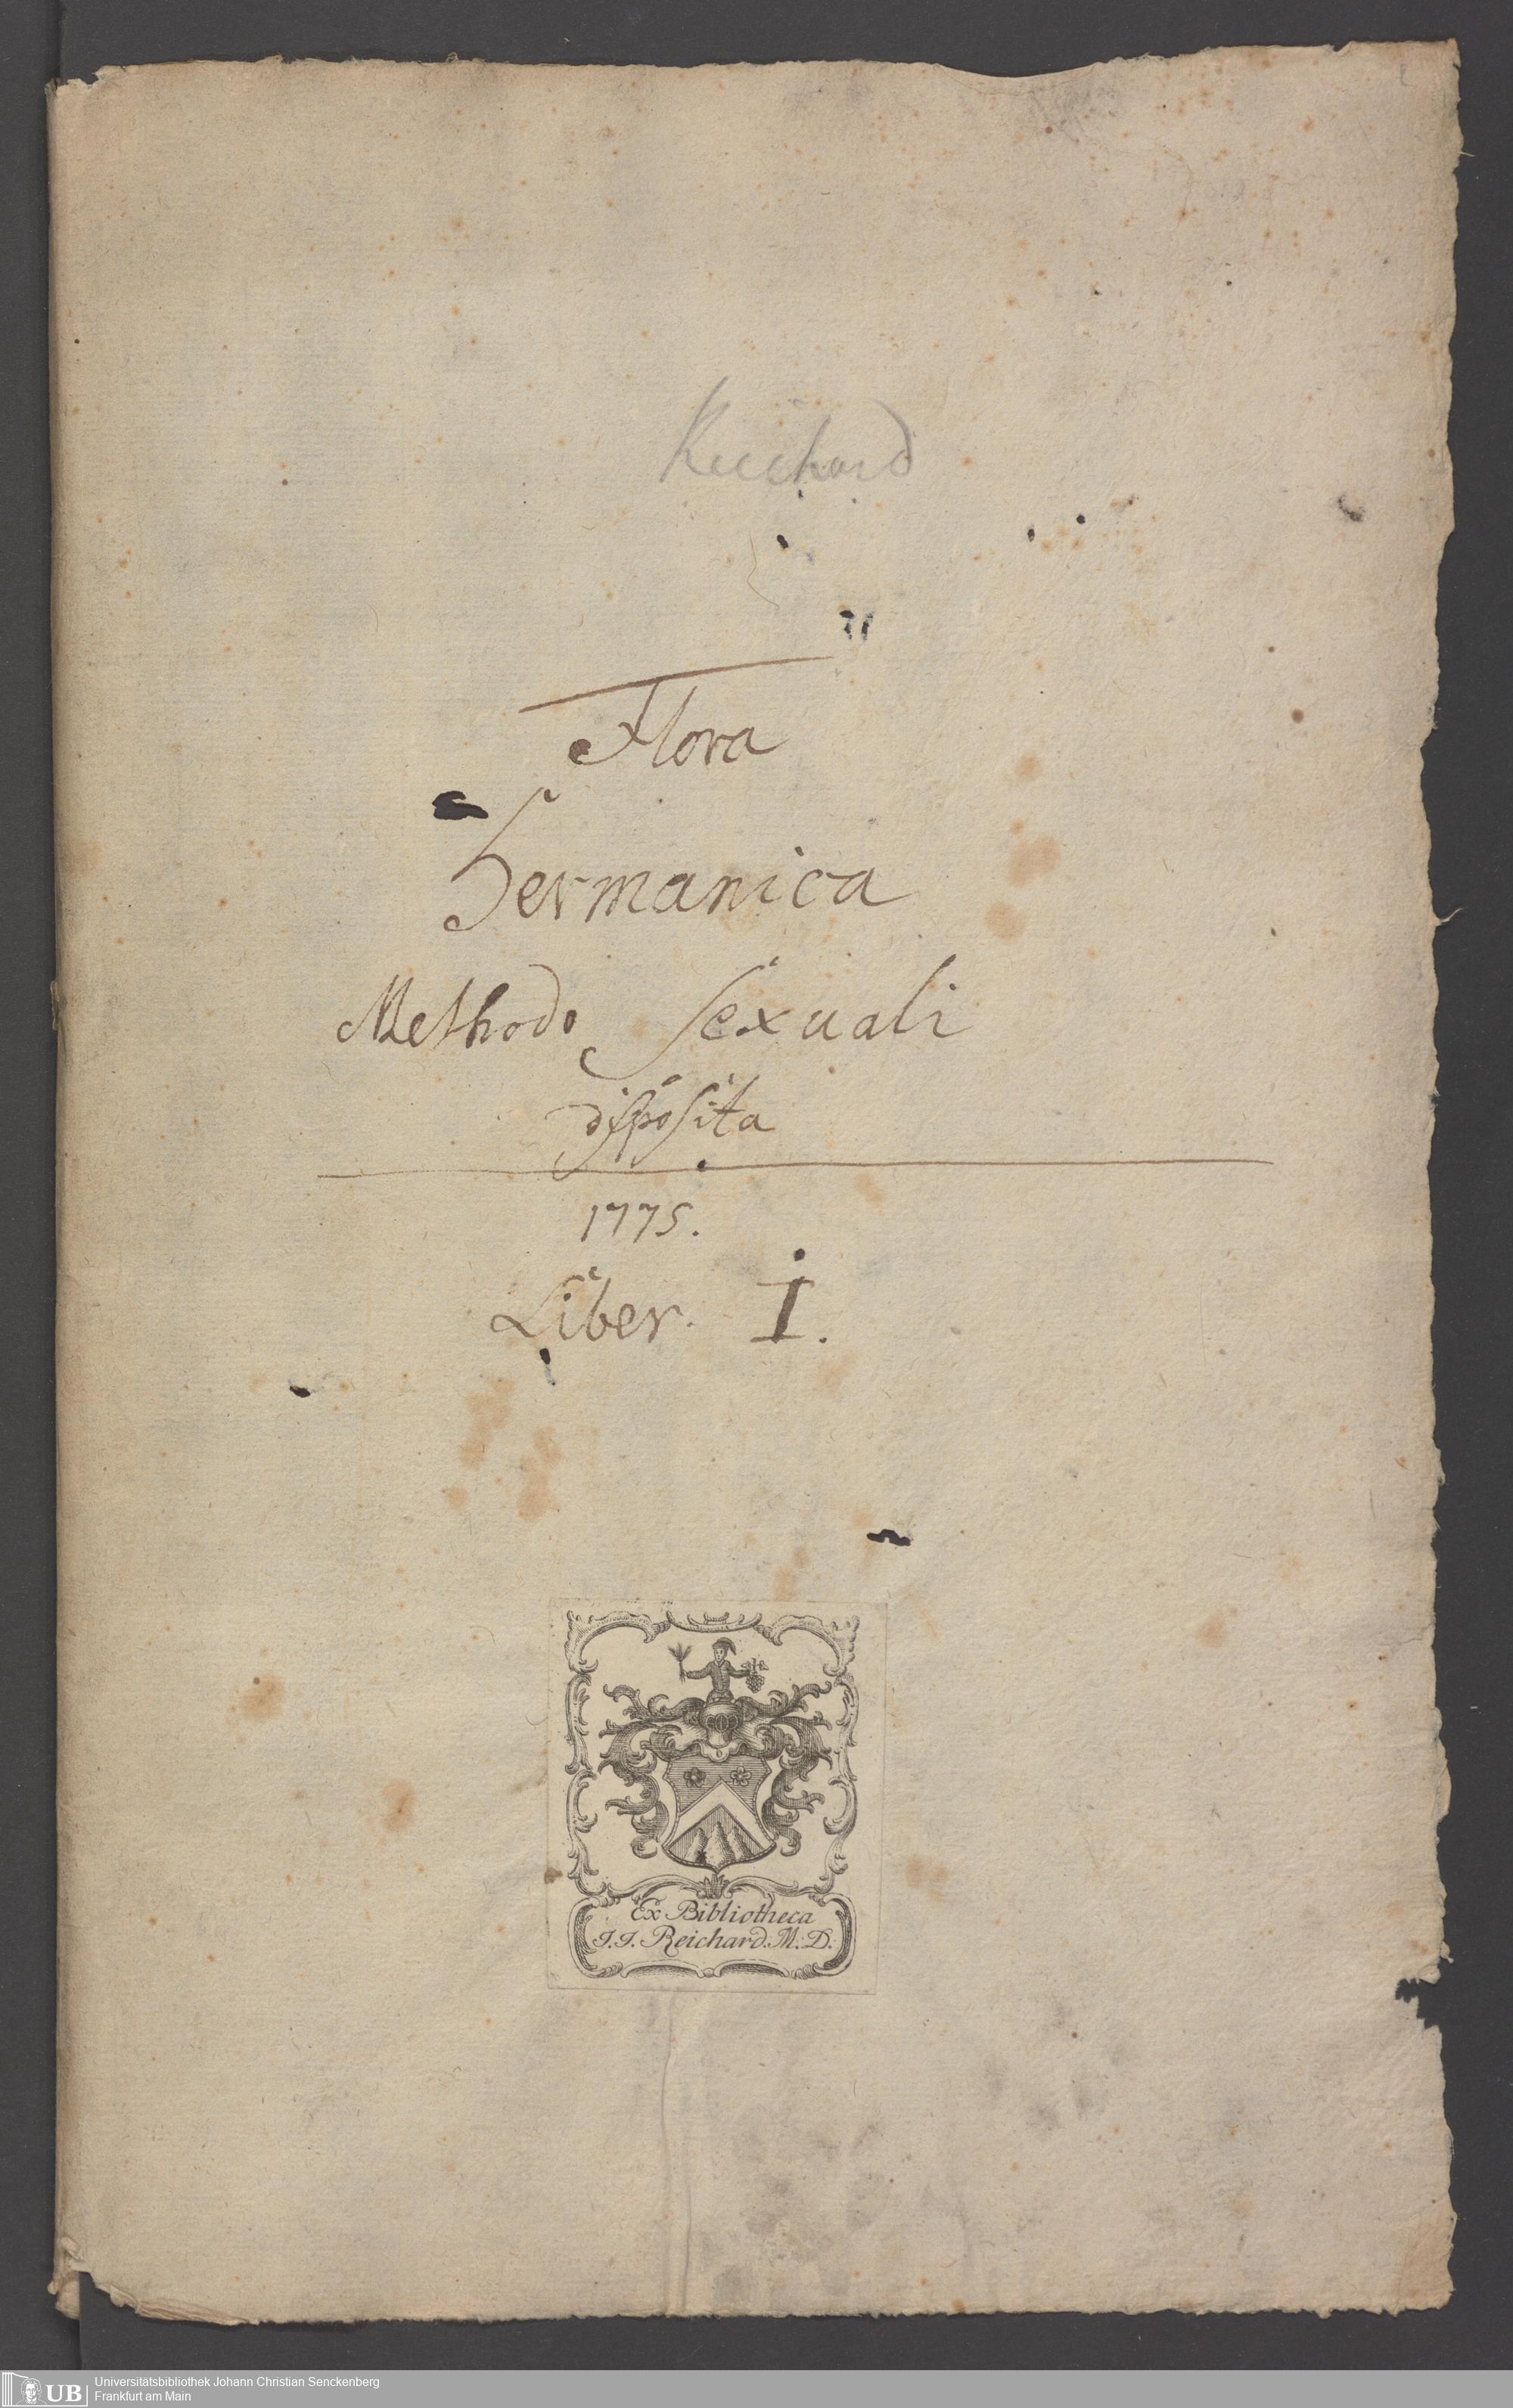 Reichard
Flora
Germanica
Methodo sexuali
disposita
1775.
Liber. I.
Ex Bibliotheca
J. J. Reichard. M. D.
UB Universitätsbibliothek Johann Christian Senckenberg
Frankfurt am Main